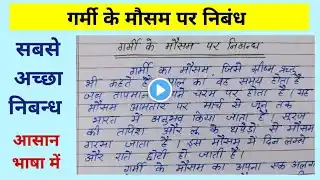 गर्मी के मौसम पर निबंध
सबसे
अच्छा
निबन्ध
आसान
भाषा में
गर्मी के मौसम पर निबन्ध
गर्मी का मौसम, जिसे ग्रीष्म ऋतु
भी कहते हैं, साल का वह समय होता है
जब तापमान अपने चरम पर होता है। यह
मौसम आमतौर पर मार्च से जून तक
भारत में अनुभव किया जाता है। सूरज
की तपिश और लू के थपेड़ों से मौसम
गरमा जाता है। इस मौसम में दिन लम्बे
और रातें छोटी हो जाती हैं।
गर्मी के मौसम का अपना एक अलग